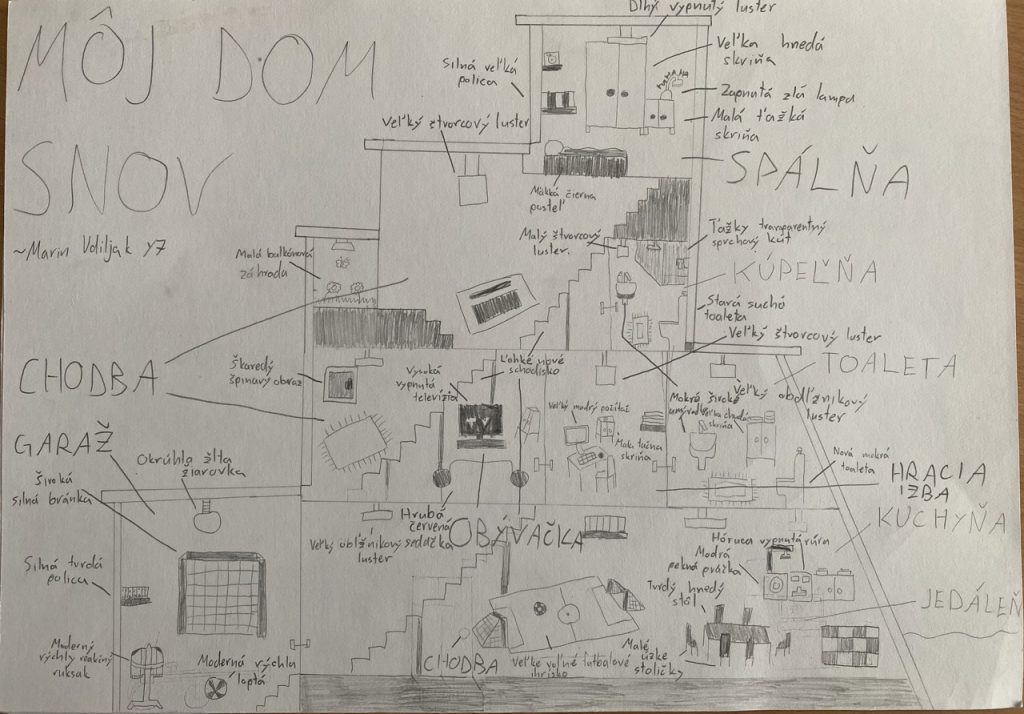 MÔJ DOM
SNOV
~Marin Vdiljak Y7
Dlhý vypnutý luster
Veľka hnedá
skriňa
Silná veľká
polica
Zapnutá zlá lampa
Malá ťažká
skriňa
Veľký štvorcový luster
SPÁLŇA
Mäkká čierna
posteľ
Malý štvorcový
luster
Ťažky transparentný
sprchový kút
Malá balkónová
záhrada
KÚPEĽŇA
Stará suchá
toaleta
Veľký štvorcový luster
CHODBA
Škaredý
špinavý obraz
Ľahké nové
schodisko
Vysoká
vypnutá
televízia
TOALETA
Veľký obdľžnikový
luster
Mokré široké
skriňa
Veľký modrý počítač
skriňa
Nová mokrá
toaleta
GARÁŽ
Široká
silná bránka
Okrúhla žlta
žiarovka
HRACIA
IZBA
Hrubá
červená
sedačka
OBÝVAČKA
Veľký obľžnikový
luster
KUCHYŇA
Hóruca vypnutá rúra
Modrá
pekná práčka
Silná tvrdá
polica
Tvrdý hnedý
stôl
JEDÁLEŇ
Moderný
rýchly
ruksak
Moderná rýchlu
lopta
CHODBA
Veľke voľné futbalové
ihrisko
Malé
úzke
stoličky